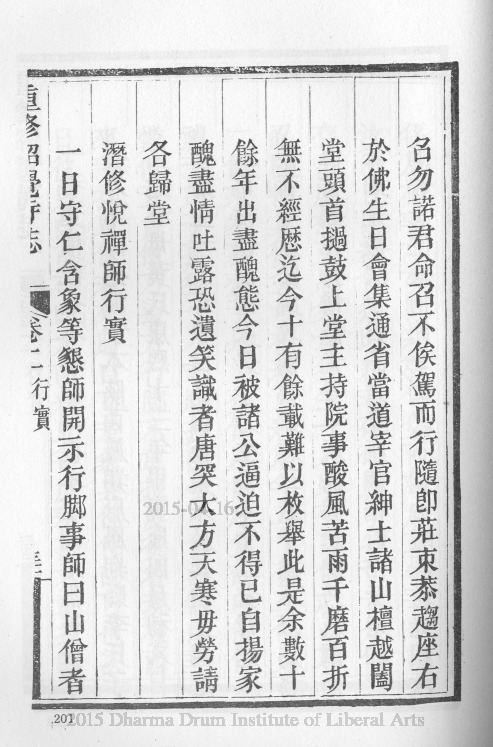 召勿諾君命召不俟駕而行隨卽莊束恭趨座右
於佛生日會集通省當道宰官紳士諸山檀越闔
堂頭首撾鼓上堂主持院事酸風苦雨千磨百折
無不經歷迄今十有餘載難以枚舉此是余數十
餘年出盡醜態今日被諸公逼迫不得已自揚家
醜盡情吐露恐遺笑識者唐突大方天寒毋勞請
各歸堂
潛修悅禪師行實
一日守仁含象等懇師開示行脚事師曰山僧者
重修昭覺寺志 卷二行實 三二
2015-04-16
201
2015 Dharma Drum Institute of Liberal Arts